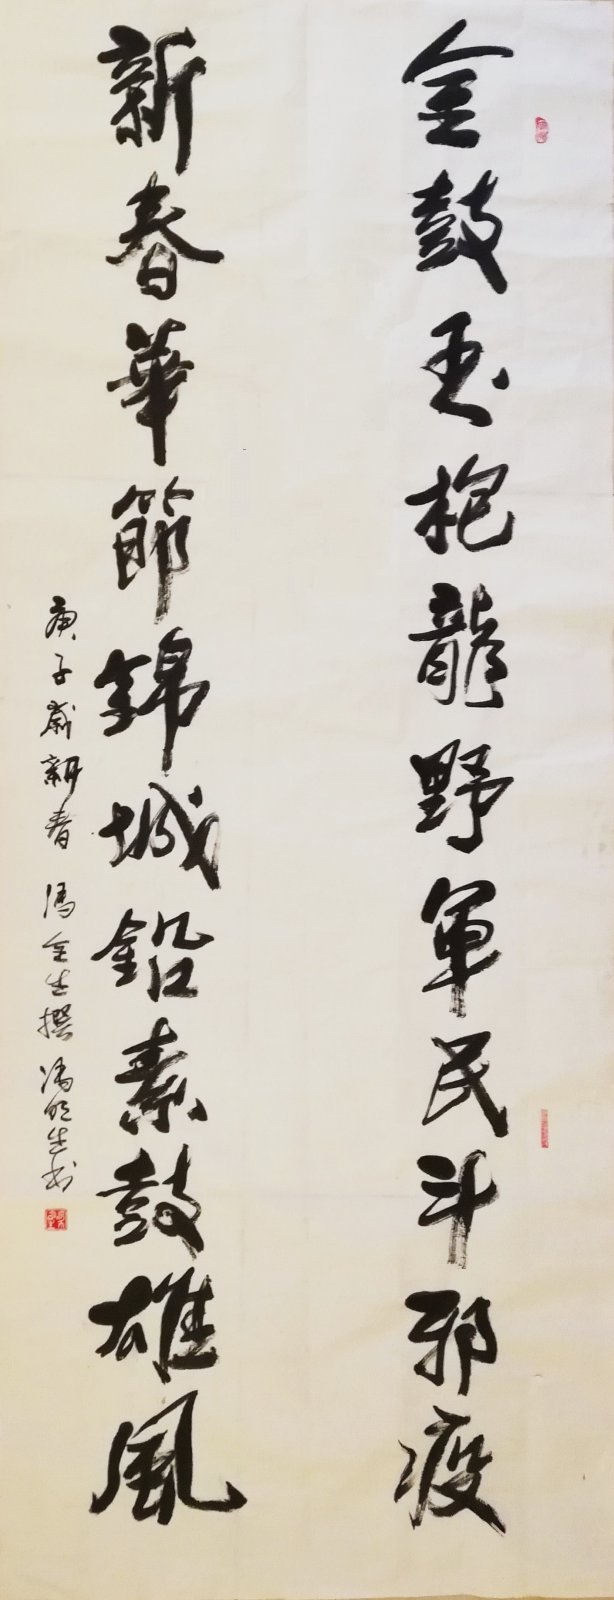 金鼓玉枹龍野軍民斗邪疫
新春華節錦城鉛素鼓雄風
庚子歲新春 馮金生撰 馮明生书